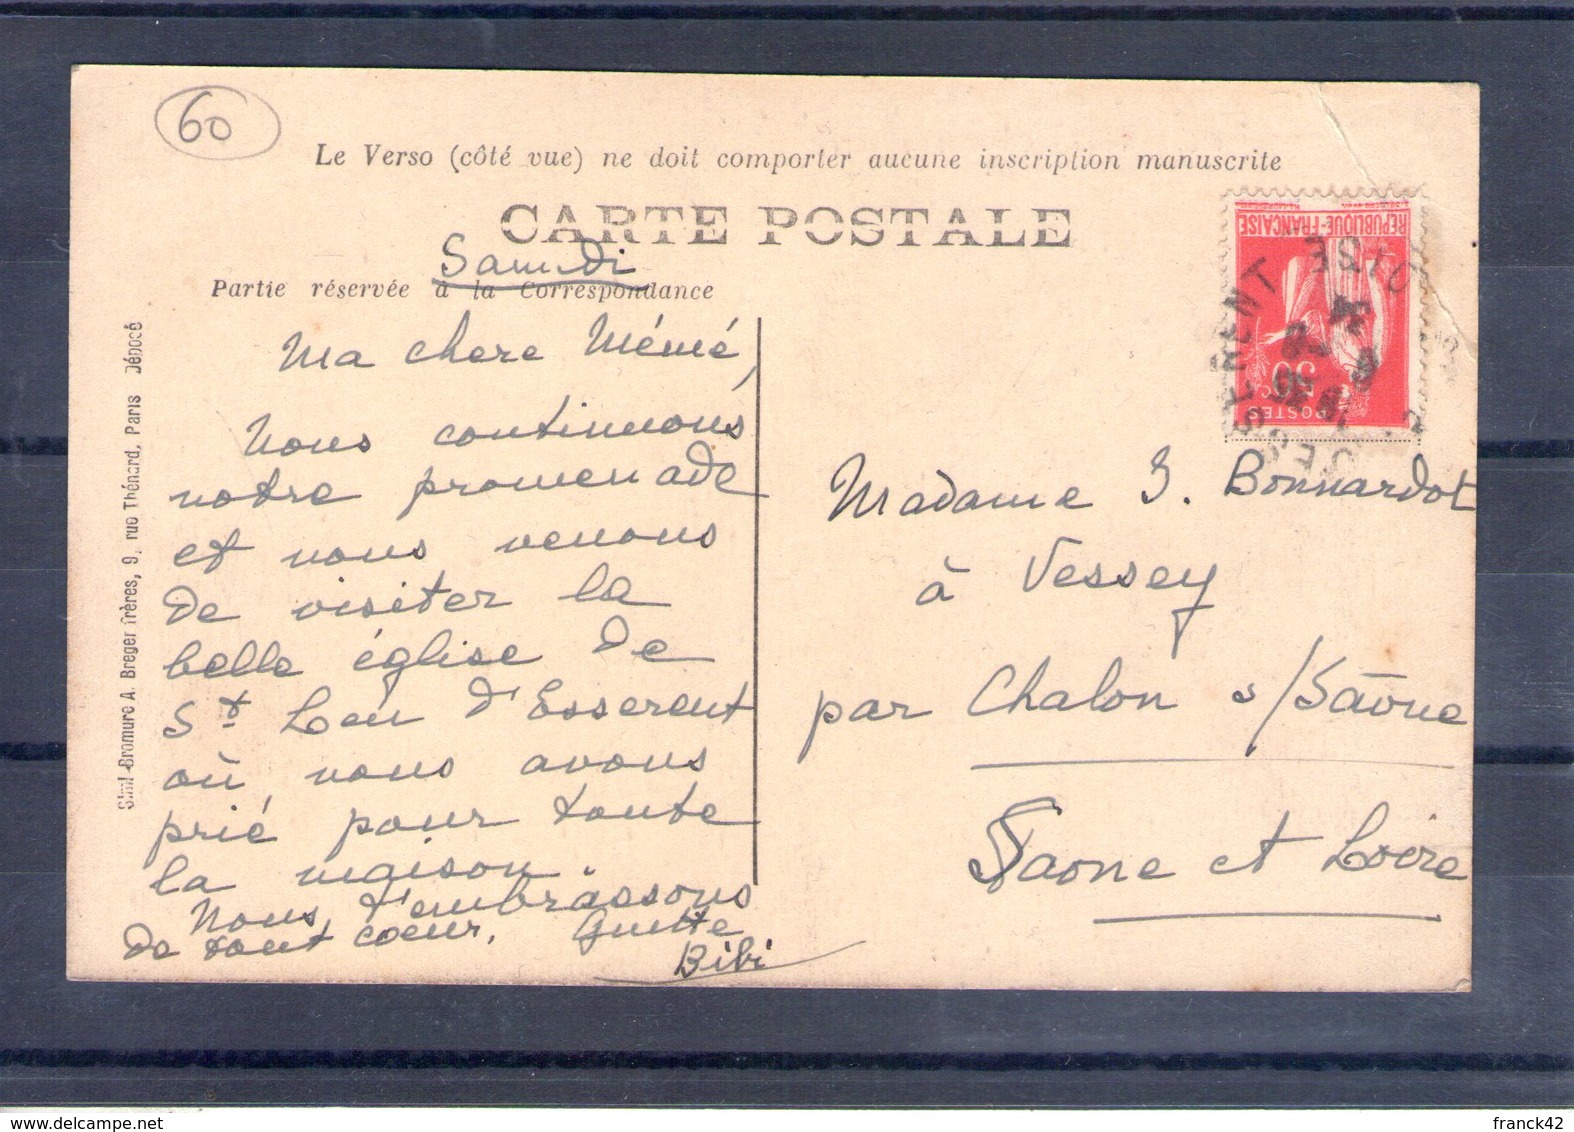 60
Le Verso (côté vue) ne doit comporter aucune inscription manuscrite
CARTE POSTALE
Samedi
Partie réservée à la Correspondance
Ma chere Mémé,
Nous continuons
notre promenade
et nous venons
de visiter la
belle église de
St Leu d'Esserent
où nous avons
prié pour toute
la maison.
Nous t'embrassons
de tout coeur. Guitte
Bibi
Simili-Bromure A. Breger frères, 9, rue Thénard, Paris Déposé
REPUBLIQUE-FRANÇAISE
50
POSTES
OISE
ESSERENT
Madame J. Bonnardot
à Vessey
par Chalon s/Saône
Saone et Loire
delcampe.net
franck42